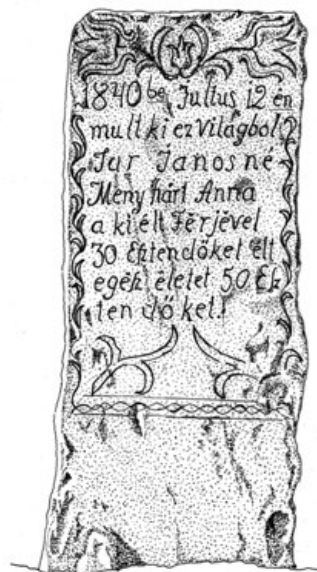 1840be Julius 12 én
mult ki ez Világbol
Tar Janosné
Meny hárt Anna
a ki élt Férjével
30 Esztendőket élt
egész életet 50 Esz
ten dő ket.